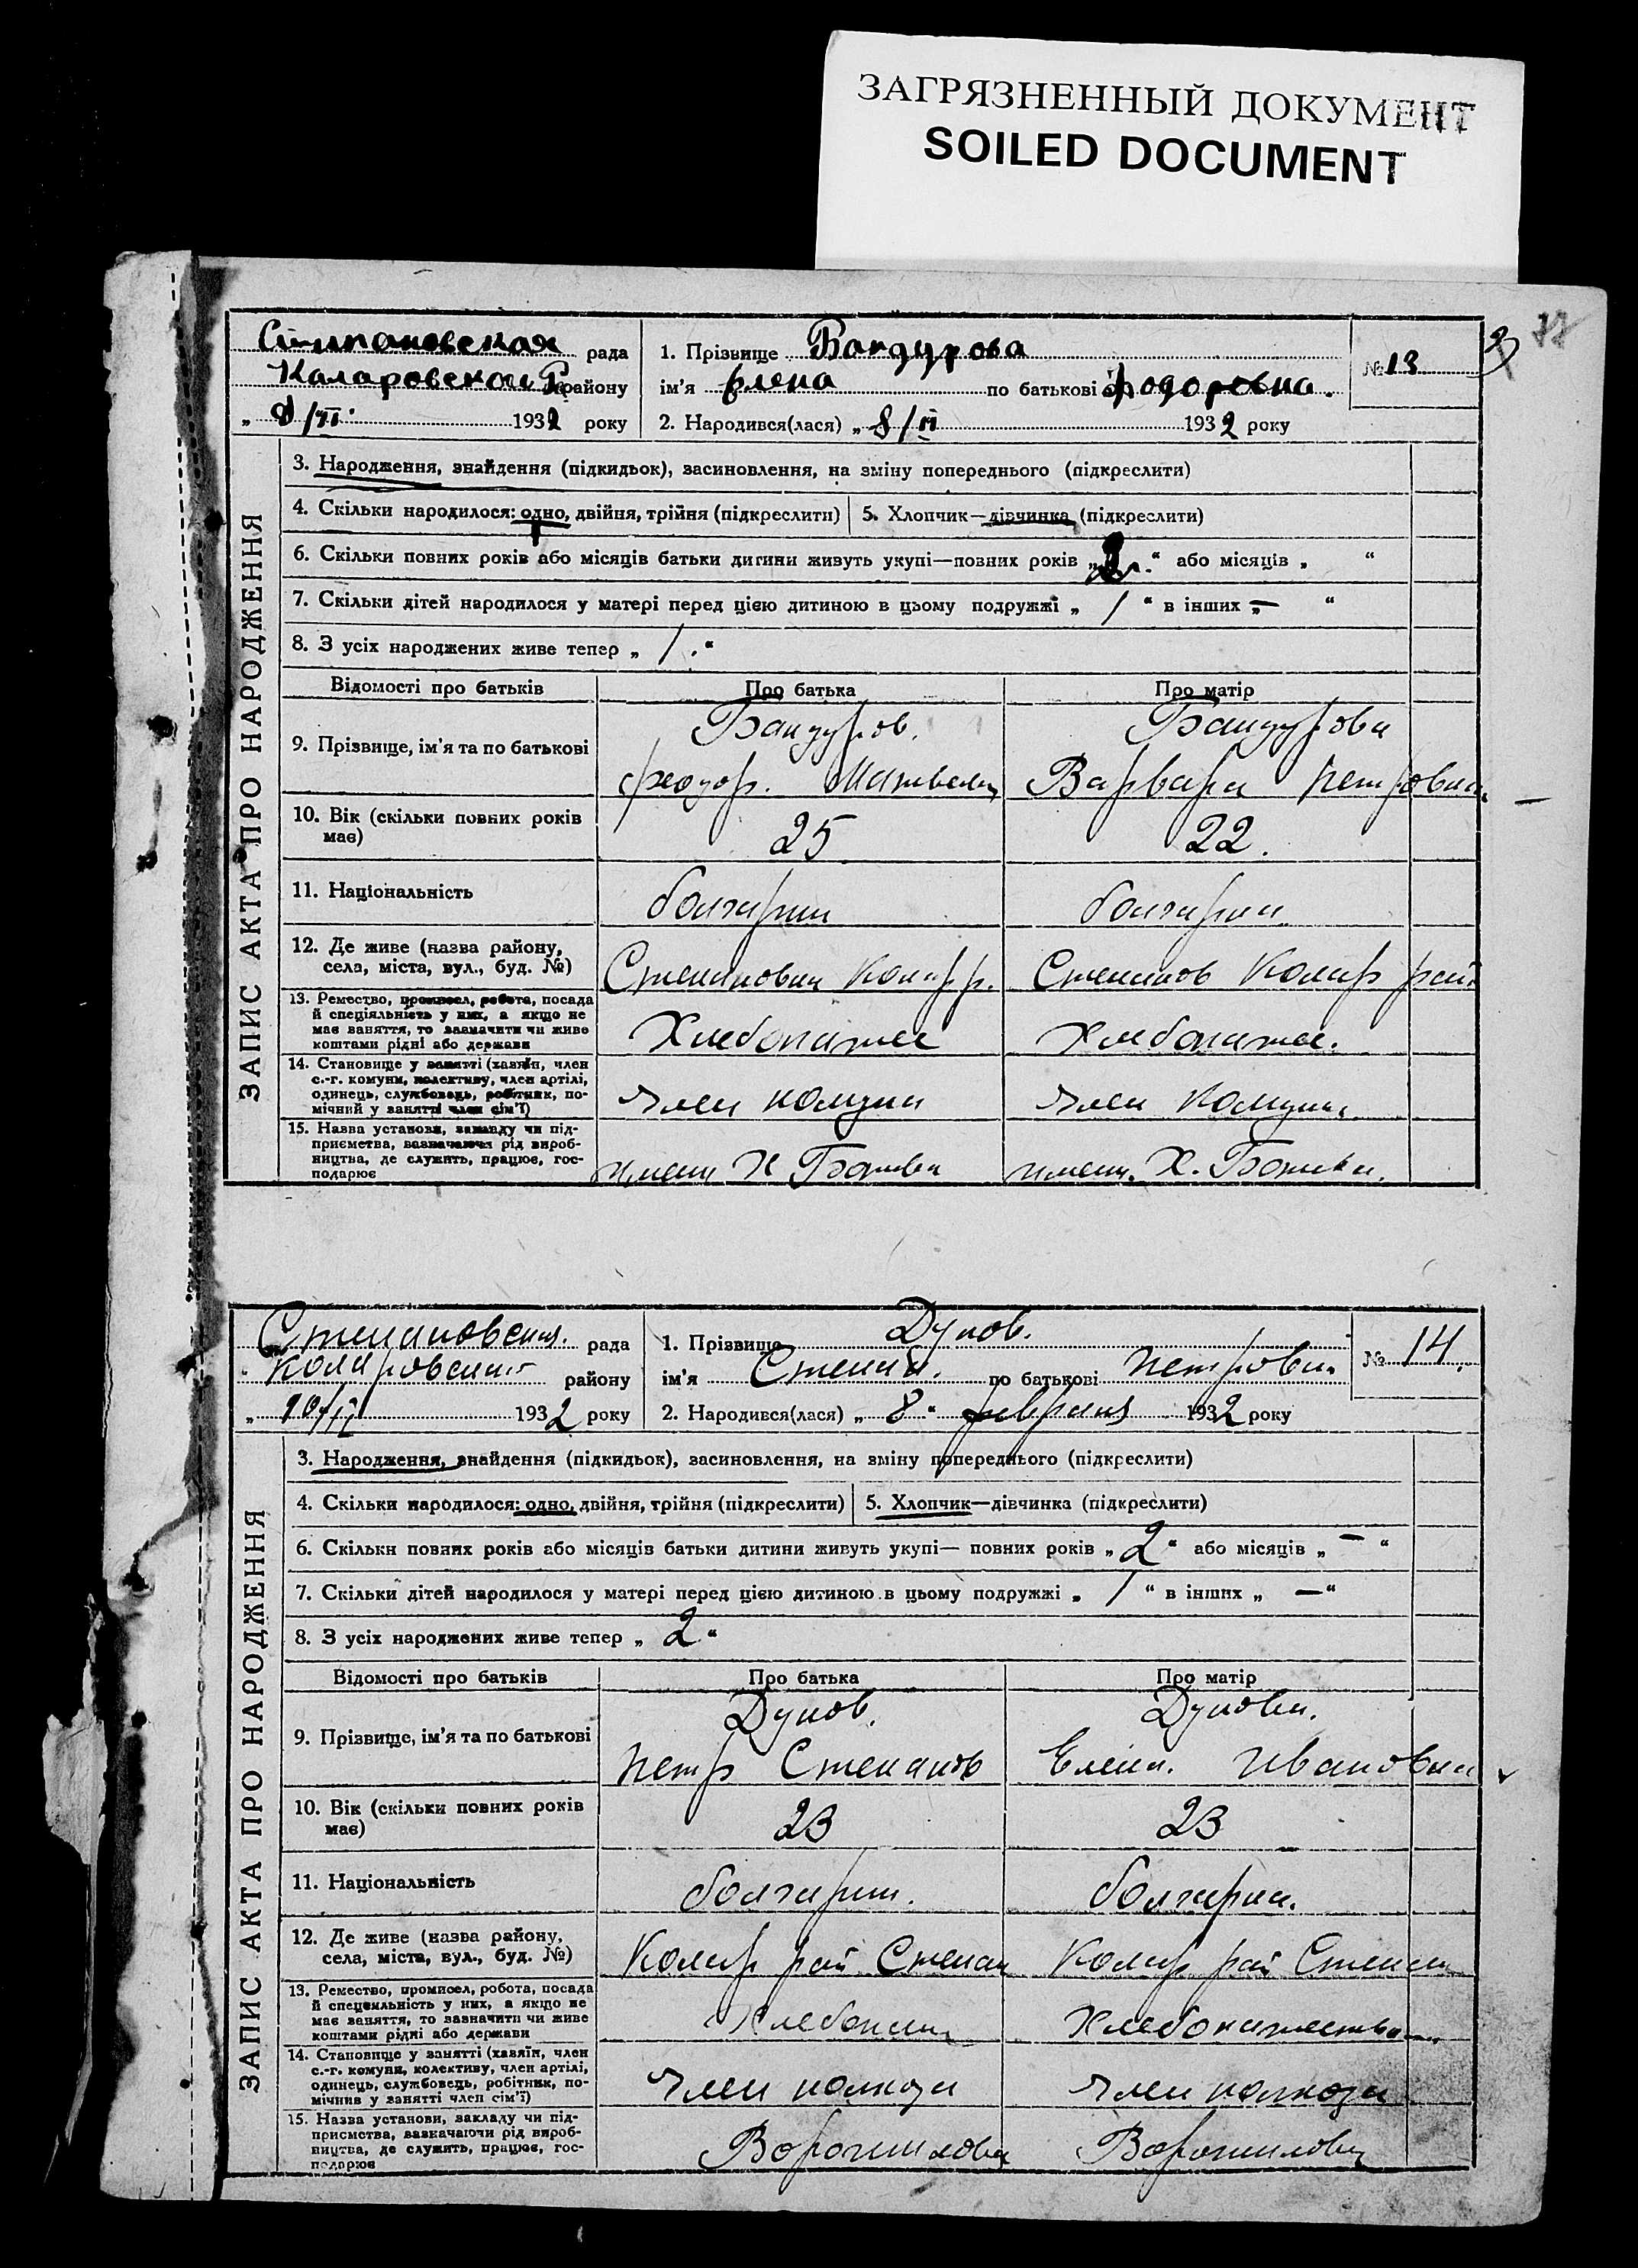 ЗАГРЯЗНЕННЫЙ ДОКУМЕНТ
SOILED DOCUMENT
Степановская рада
Каларовской района
„ 8/II. 1932 року
1. Прізвище Бандурова
ім'я Елена по батькові Федоровна.
2. Народився(лася) „ 8/II 1932 року
№ 13
ЗАПИС АКТА ПРО НАРОДЖЕННЯ
3. Народження, знайдення (підкидьок), засиновлення, на зміну попереднього (підкреслити)
4. Скільки народилося: одно, двійня, трійня (підкреслити) 5. Хлопчик—дівчинка (підкреслити)
6. Скільки повних років або місяців батьки дитини живуть укупі—повних років „ 2 “ або місяців „ “
7. Скільки дітей народилося у матері перед цією дитиною в цьому подружжі „ 1 “ в інших „ — “
8. З усіх народжених живе тепер „ 1. “
Відомості про батьків Про батька Про матір
9. Прізвище, ім'я та по батькові
Бандуров. Бандурова
Феодор. Матвеевич Варвара Петровна
10. Вік (скільки повних років має)
25 22.
11. Національність
болгарин болгарка
12. Де живе (назва району, села, міста, вул., буд. №)
Степановка Колар р. Степанов Колар рай
13. Ремество, промисел, робота, посада
й спеціяльність у них, а якщо не
має заняття, то зазначити чи живе
коштами рідні або держави
Хлебопашес Хлебопашес.
14. Становище у занятті (хазяїн, член
с.-г. комуни, колективу, член артілі,
одинець, службовець, робітник, по-
мічний у занятті член сім'ї)
Член комуни Член комуны
15. Назва установи, закладу чи під-
приємства, зазначаючи рід вироб-
ництва, де служить, працює, гос-
подарює
имени Х Ботева имени. Х. Ботева.
Степановская. рада
Коларовского району
„ 10/II 1932 року
1. Прізвище Дунов.
ім'я Степан. по батькові Петрович
2. Народився(лася) „ 8 “ февраля 1932 року
№ 14.
ЗАПИС АКТА ПРО НАРОДЖЕННЯ
3. Народження, знайдення (підкидьок), засиновлення, на зміну попереднього (підкреслити)
4. Скільки народилося: одно, двійня, трійня (підкреслити) 5. Хлопчик—дівчинка (підкреслити)
6. Скільки повних років або місяців батьки дитини живуть укупі— повних років „ 2 “ або місяців „ — “
7. Скільки дітей народилося у матері перед цією дитиною в цьому подружжі „ 1 “ в інших „ — “
8. З усіх народжених живе тепер „ 2 “
Відомості про батьків Про батька Про матір
9. Прізвище, ім'я та по батькові
Дунов. Дунова.
Петр Степанов Елена. Ивановна
10. Вік (скільки повних років має)
23 23
11. Національність
болгарин. болгарка.
12. Де живе (назва району, села, міста, вул., буд. №)
Колар рай Степан Колар рай Степан
13. Ремество, промисел, робота, посада
й спеціяльність у них, а якщо не
має заняття, то зазначити чи живе
коштами рідні або держави
Хлебопаш Хлебопашество
14. Становище у занятті (хазяїн, член
с.-г. комуни, колективу, член артілі,
одинець, службовець, робітник, по-
мічник у занятті член сім'ї)
Член колхоза Член колхоза
15. Назва установи, закладу чи під-
приємства, зазначаючи рід вироб-
ництва, де служить, працює, гос-
подарює
Ворошилова Ворошилова